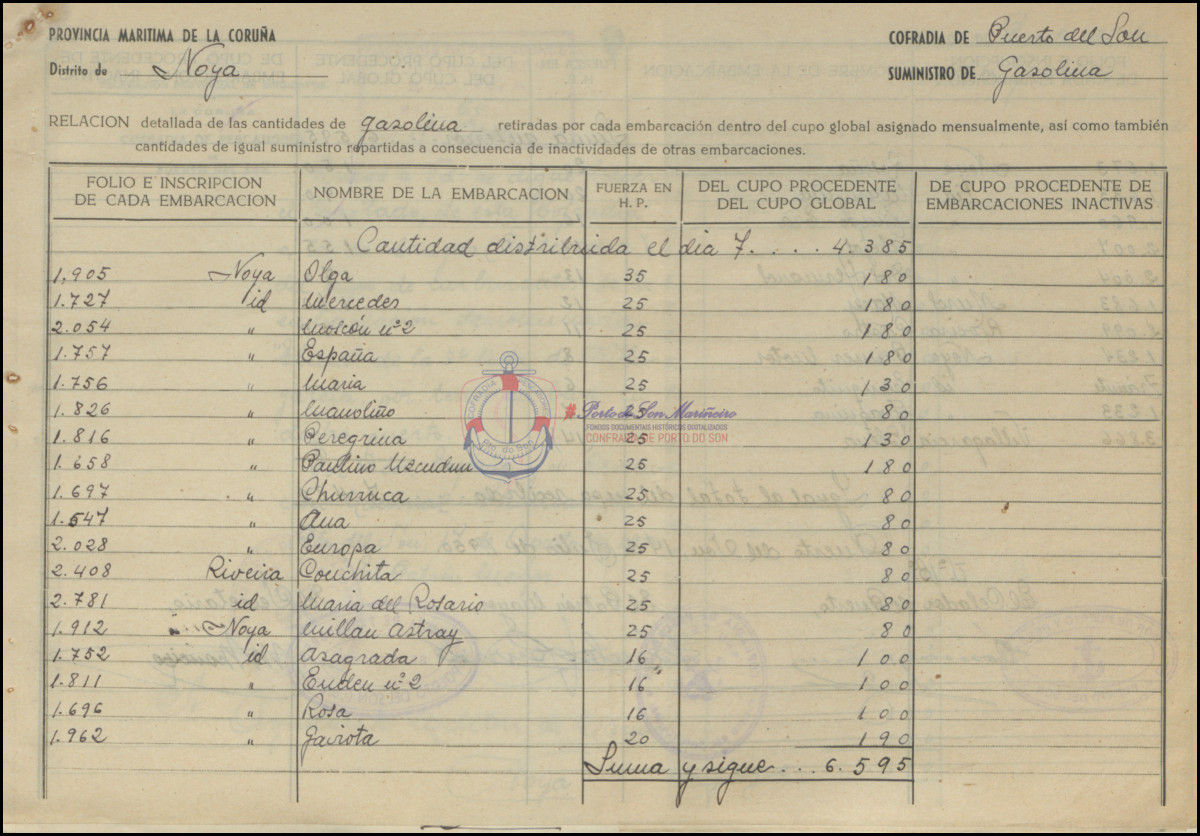 PROVINCIA MARITIMA DE LA CORUÑA
COFRADIA DE Puerto del Son
Distrito de Noya
SUMINISTRO DE Gasolina
RELACION detallada de las cantidades de gasolina retiradas por cada embarcación dentro del cupo global asignado mensualmente, así como también
cantidades de igual suministro repartidas a consecuencia de inactividades de otras embarcaciones.
FOLIO E INSCRIPCION DE CADA EMBARCACION NOMBRE DE LA EMBARCACION FUERZA EN H. P. DEL CUPO PROCEDENTE DEL CUPO GLOBAL DE CUPO PROCEDENTE DE EMBARCACIONES INACTIVAS
Cantidad distribuida el dia 7.... 4.385
1.905 Noya Olga 35 180
1.727 id Mercedes 25 180
2.054 " Moscón nº 2 25 180
1.757 " España 25 180
1.756 " Maria 25 130
1.826 " Manoliño 25 80
1.816 " Peregrina 25 130
1.658 " Paulino Uzcudun 25 180
1.697 " Churruca 25 80
1.547 " Ana 25 80
2.028 " Europa 25 80
2.408 Riveira Conchita 25 80
2.781 id Maria del Rosario 25 80
1.912 Noya Millan Astray 25 80
1.752 id Asagrada 16 100
1.811 " Euden nº 2 16 100
1.696 " Rosa 16 100
1.962 " Gaviota 20 190
Suma y sigue... 6.595
COFRADIA
Pto. do Son
#Porto do Son Mariñeiro
FONDOS DOCUMENTAIS HISTÓRICOS DIXITALIZADOS
CONFRARÍA DE PORTO DO SON